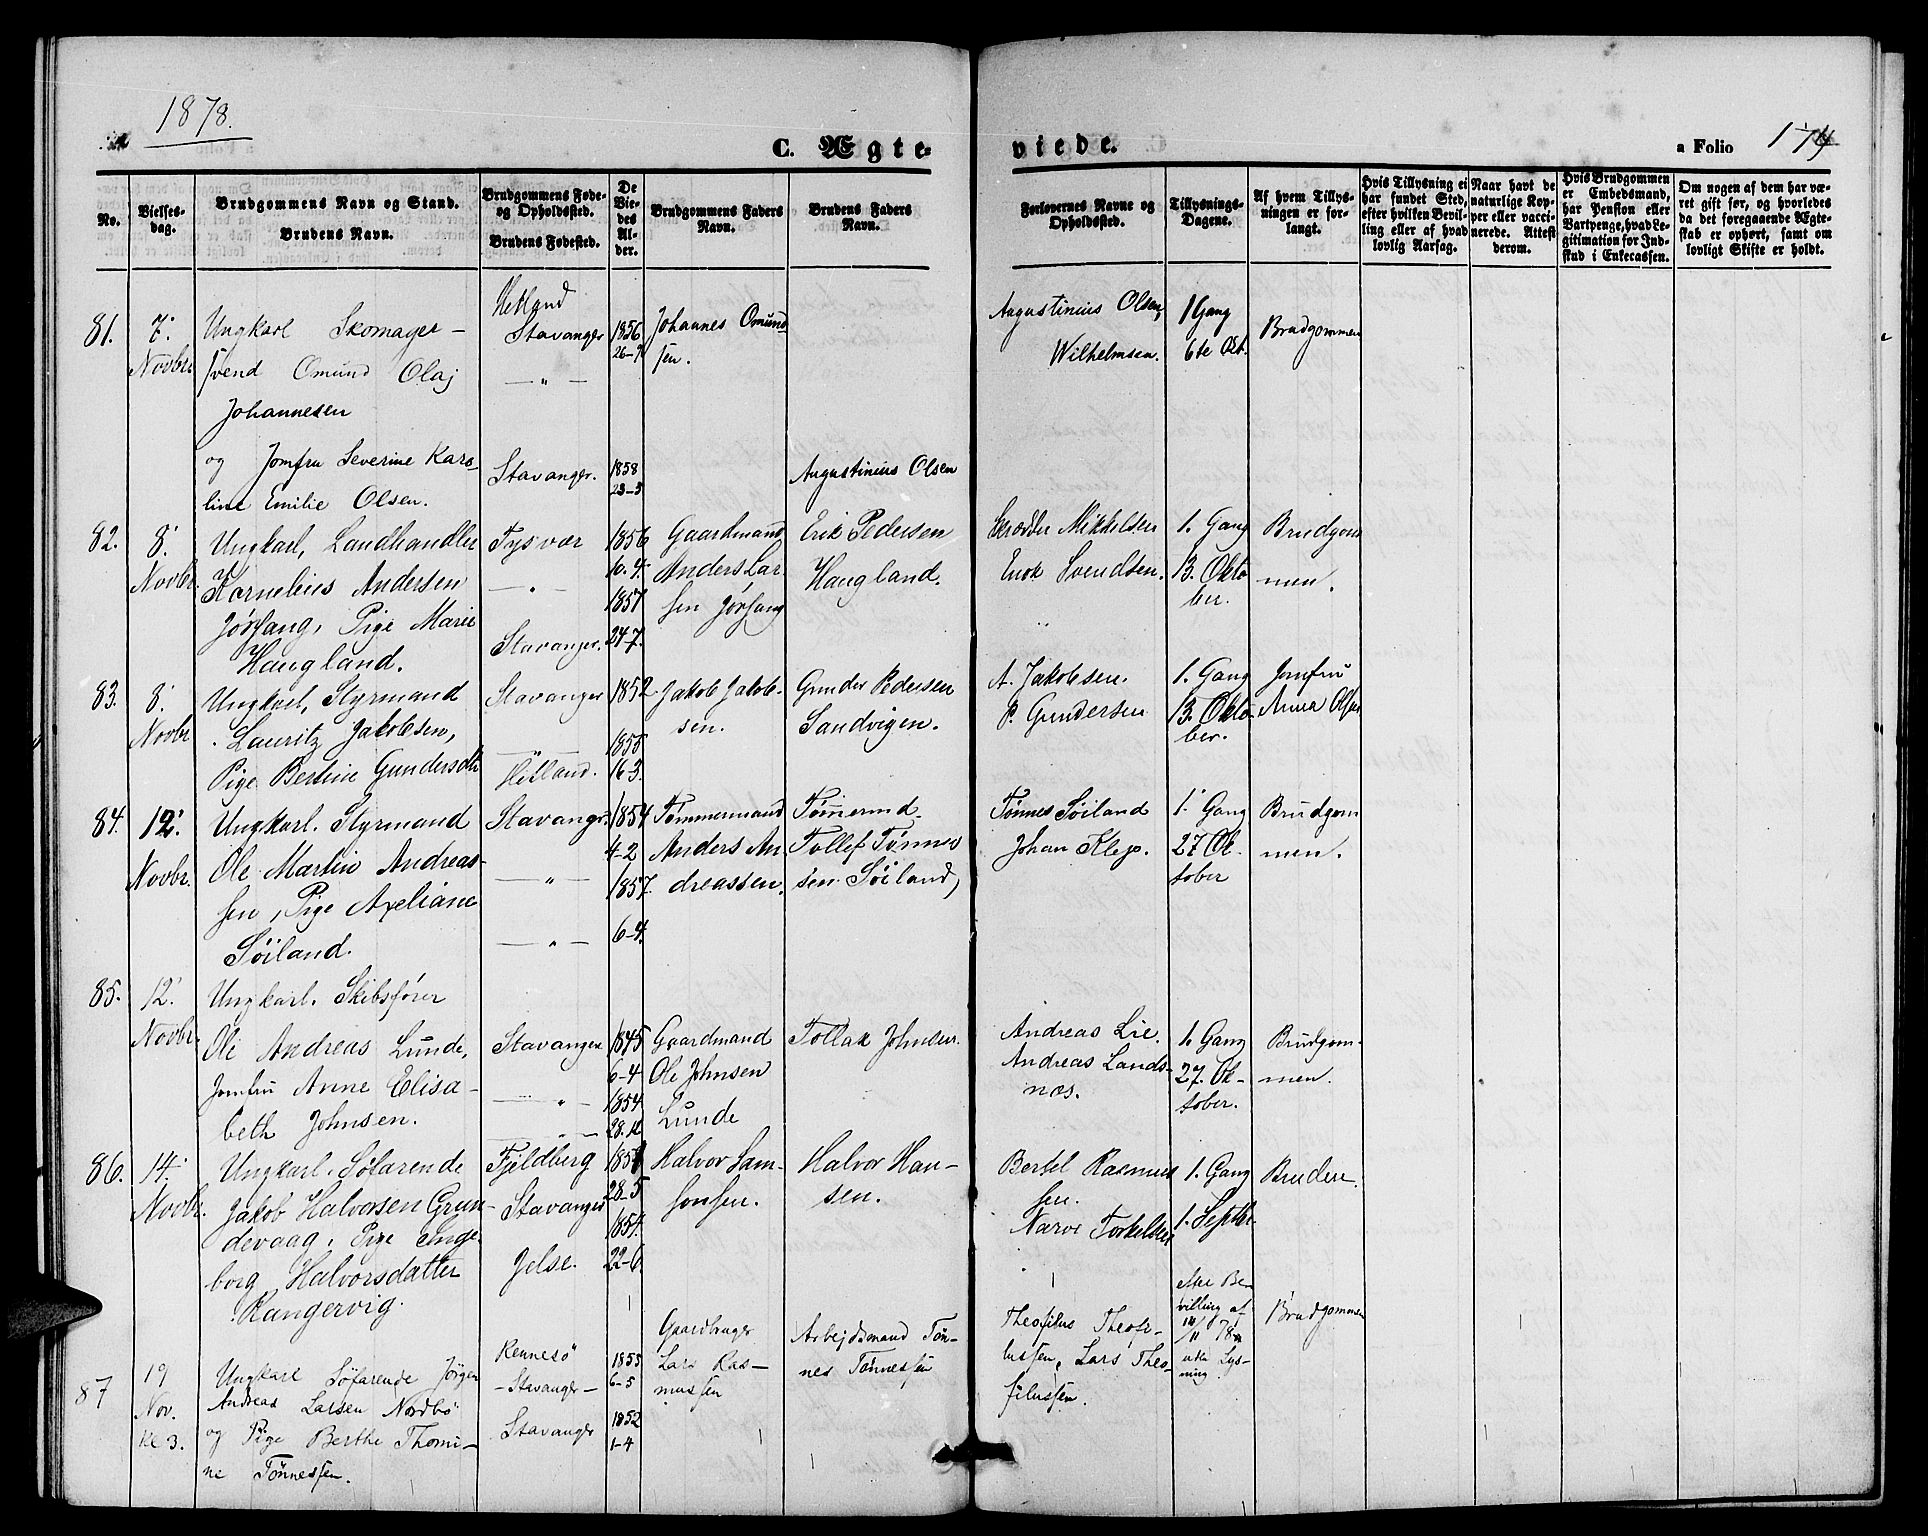 1878.
C. Ægte-
viede.
a Folio
174
No.
Vielses-
dag.
Brudgommens Navn og Stand.
Brudens Navn.
Brudgommens Føde-
og Opholdssted.
Brudens Fødested.
De
Vie-
des
Al-
der.
Brudgommens Faders
Navn.
Brudens Faders
Navn.
Forlovernes Navne og
Opholdssted.
Tillysnings-
Dagene.
Af hvem Tillys-
ningen er for-
langt.
Hvis Tillysning ei
har fundet Sted,
efter hvilken Bevil-
ling eller af hvad
lovlig Aarsag.
Naar havt de
naturlige Kop-
per eller vacci-
nerede. Attest
derom.
Hvis Brudgommen
er Embedsmand,
har Pension eller
Vartpenge, hvad Le-
gitimation for Ind-
skud i Enkecassen.
Om nogen af dem har væ-
ret gift før, og hvorledes
da det foregaaende Ægte-
skab er ophørt, samt om
lovligt Skifte er holdt.
81.
7.
Novbr
Ungkarl Skomager-
svend Omund Olaj
Johannesen
og Jomfru Severine Karo-
line Emilie Olsen.
Hetland
Stavanger
— „ —
Stavanger.
1856
26-9
1858
23-3
Johannes Omund
sen.
Augustinius Olsen
Augustinius Olsen,
Wilhelmsen.
1 Gang
6te Okt.
Brudgommen
82.
8.
Novbr.
Ungkarl, Landhandler
Kornelius Andersen
Jørsang, Pige Marie
Haugland.
Tysvær
— „ —
Stavanger.
1856
10-4.
1857
24-7.
Gaardmand
Anders Lar
sen Jørsang
Erik Pedersen
Haugland.
Skrædder Mikkelsen
Enok Svendsen.
1. Gang
13. Okto
ber.
Brudgom
men.
83.
8.
Novbr
Ungkarl, Styrmand
Lauritz Jakobsen,
Pige Bertine Gundersdtr
Stavanger
— „ —
Hetland.
1852
1855
16-3.
Jakob Jakob-
sen.
Gunder Pedersen
Sandvigen.
A. Jakobsen.
P. Gundersen
1. Gang
13. Okto-
ber.
Jomfru
Anna Olsen
84.
12.
Novbr.
Ungkarl. Styrmand
Ole Martin Andreas-
sen, Pige Axeliane
Söiland.
Stavanger.
— „ —
— „ —
1854
4-2
1857.
6-4.
Tømmermand
Anders An
dreassen.
Tømermd.
Tollef Tønnes
sen Söiland,
Tønnes Söiland
Johan Klep.
1. Gang
27 Ok-
tober
Brudgom
men.
85.
12.
Novbr.
Ungkarl. Skibsfører
Ole Andreas Lunde,
Jomfru Anne Elisa-
beth Johnsen.
Stavanger
— „ —
— „ —
1845
6-4
1854
28-12
Gaardmand
Ole Johnsen
Lunde
Tollak Johnsen.
Andreas Lie.
Andreas Lands-
næs.
1. Gang
27. Ok-
tober.
Brudgom-
men.
86.
14.
Novbr.
Ungkarl. Söfarende
Jakob Halvorsen Grun-
devaag, Pige Inge-
borg Halvorsdatter
Kangervig.
Fjeldberg
Stavanger
Jelse.
28-5
1854.
22-6
Halvor Sam-
sonsen.
Halvor Han-
sen.
Bertel Rasmus
sen.
Narve Torkelsen
1. Gang
1. Septbr.
Bruden.
87
19
Nov.
Kl 3.
Ungkarl Söfarende Jörgen
Andreas Larsen Nordbö
og Pige Berthe Thomi-
ne Tönnessen.
Rennesö
- Stavanger -
Stavanger
1855
6-5
1852
1-4
Gaardbruger
Lars Ras-
mussen
Arbejdsmand Tön-
nes Tönnessen
Theofilus Theofi-
lussen, Lars Theo-
filussen.
efter Be-
villing af
14/11 78
uden Lys-
ning
Brudgommen